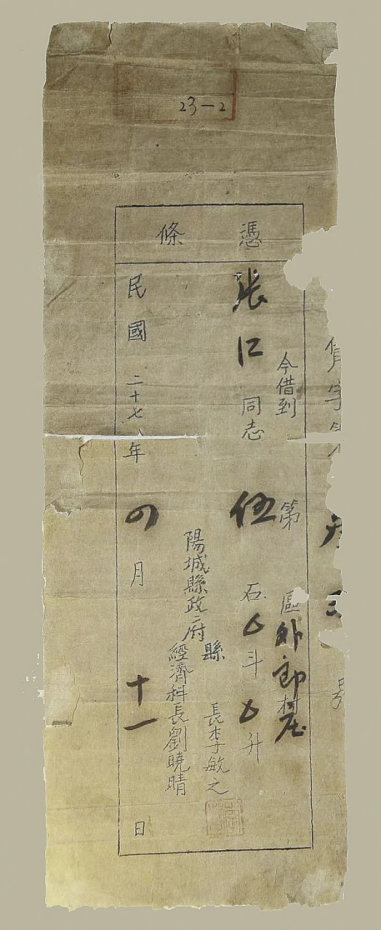 23-2
憑條
今借到第 區外郎村庄
張仁同志伍石 斗 升
陽城縣政府
縣長李敏之
經濟科長劉曉晴
民國二十七年四月十一日